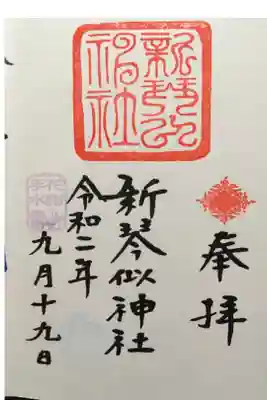 奉拝
新琴似神社
令和二年
九月十九日
新琴似神社